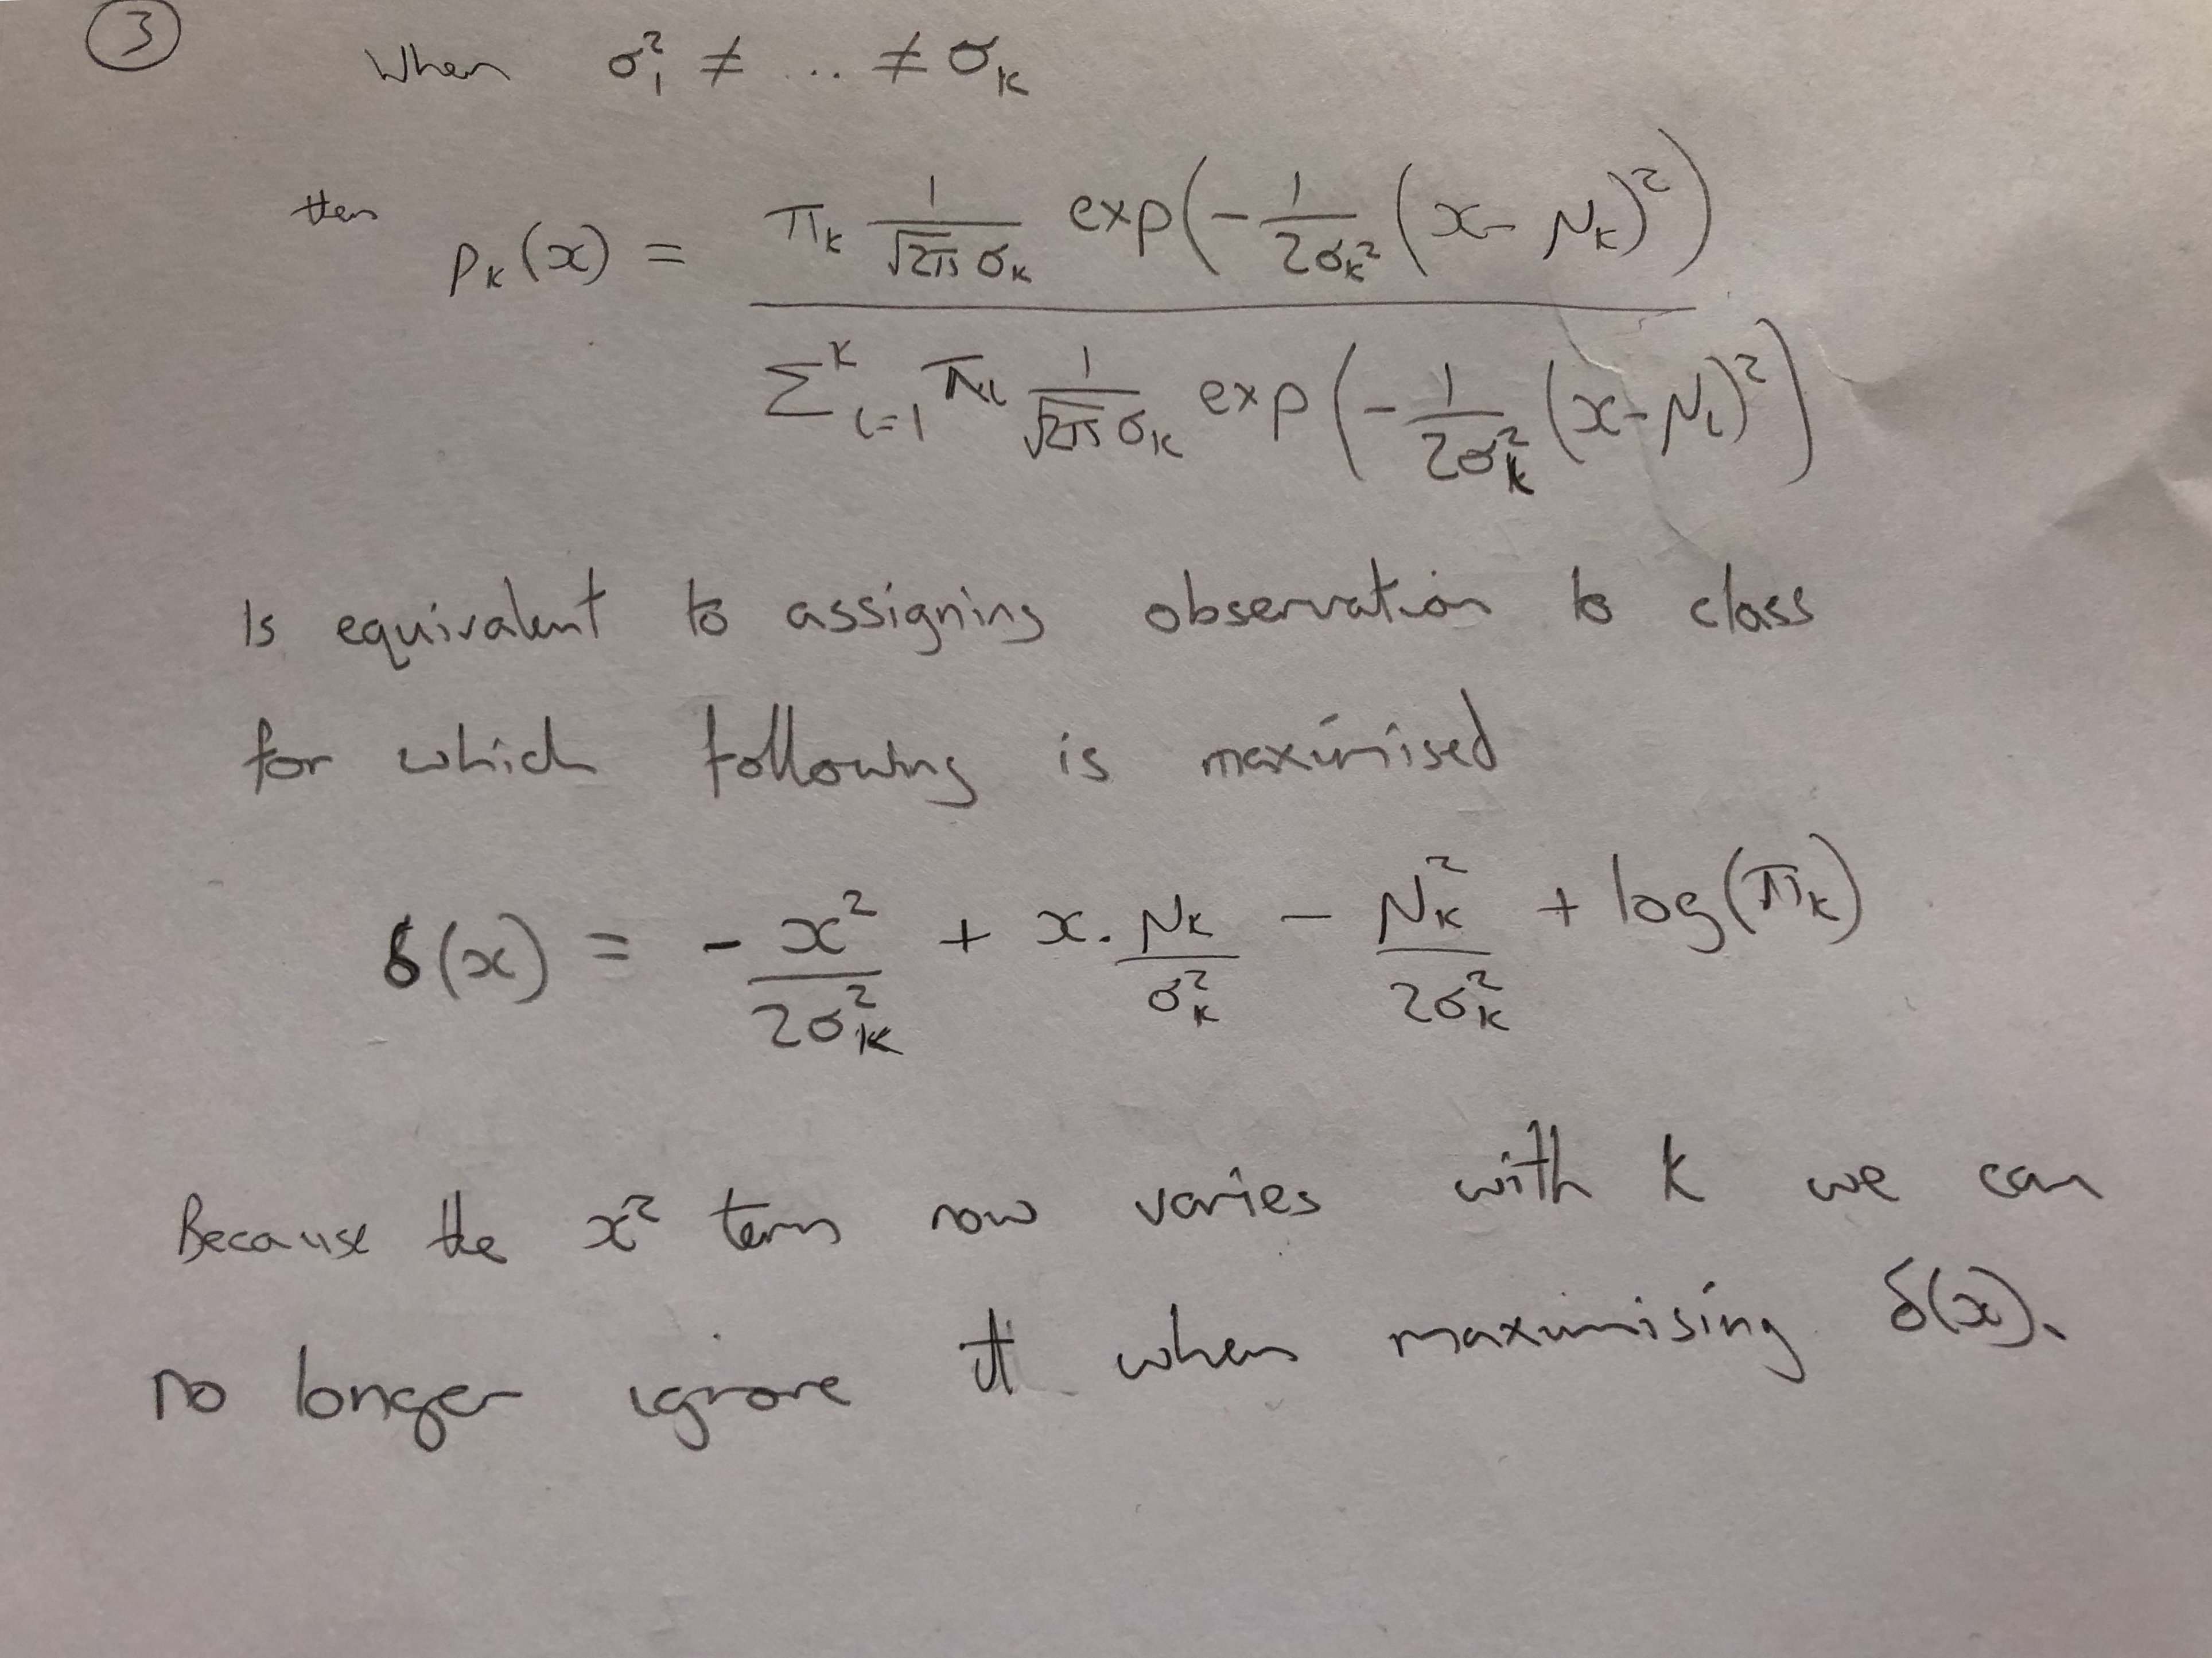 ③ When σ₁² ≠ .. ≠ σₖ
then pₖ(x) = πₖ 1/(√2π σₖ) exp(-1/(2σₖ²) (x-μₖ)²)
Σᴷ l=1 πl 1/(√2π σₖ) exp(-1/(2σₖ²) (x-μl)²)
Is equivalent to assigning observation to class
for which following is maximised
δ(x) = - x²/(2σₖ²) + x. μₖ/σₖ² - μₖ²/(2σₖ²) + log(πₖ)
Because the x² term now varies with k we can
no longer ignore it when maximising δ(x).